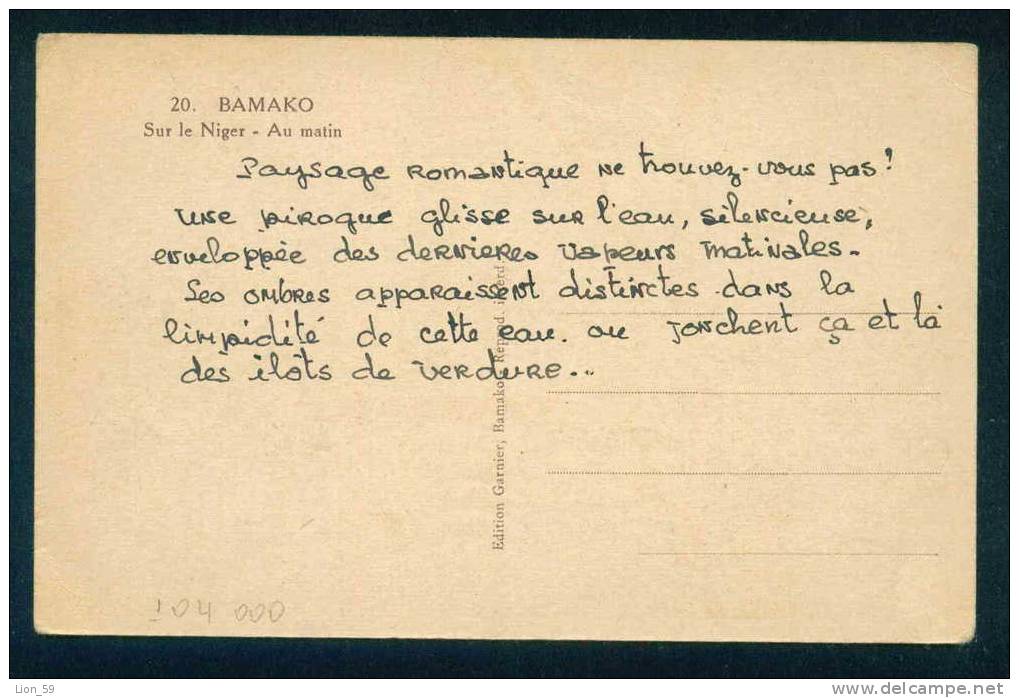 20. BAMAKO
Sur le Niger - Au matin
Paysage romantique ne trouvez-vous pas!
une pirogue glisse sur l'eau, silencieuse,
enveloppée des dernieres vapeurs matinales.
Ses ombres apparaissent distinctes dans la
limpidité de cette eau. ou jonchent ça et là
des ilôts de verdure...
Edition Garnier, Bamako. Reprod. interd.
104 000
Lion_59
www.delcampe.net